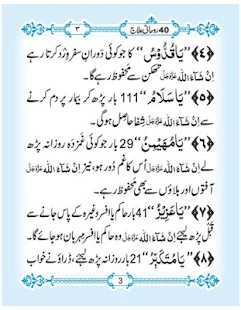 ٣ 40 روحانی علاج
﴿٤﴾ ’’یَاقُدُّوْسُ‘‘ کا جو کوئی دَورانِ سفر وِرْد کرتا رہے
اِنْ شَآءَ اللّٰہ عَزَّوَجَلَّ تھکن سے محفوظ رہے گا۔
﴿٥﴾ ’’یَاسَلَامُ‘‘ 111 بار پڑھ کر بیمار پر دم کرنے سے
اِنْ شَآءَ اللّٰہ عَزَّوَجَلَّ شفا حاصل ہوگی۔
﴿٦﴾ ’’یَامُھَیْمِنُ‘‘ 29 بار جو کوئی غمزدہ روزانہ پڑھ
لے اِنْ شَآءَ اللّٰہ عَزَّوَجَلَّ اُس کا غم دُور ہو، نیز اِنْ شَآءَ اللّٰہ عَزَّوَجَلَّ
آفتوں اور بلاؤں سے بھی محفوظ رہے۔
﴿٧﴾ ’’یَاعَزِیْزُ‘‘ 41 بار حاکم یا افسر وغیرہ کے پاس جانے سے
قبل پڑھ لیجئے اِنْ شَآءَ اللّٰہ عَزَّوَجَلَّ وہ حاکم یا افسر مہربان ہو جائے گا۔
﴿٨﴾ ’’یَامُتَکَبِّرُ‘‘ 21 بار روزانہ پڑھ لیجئے، ڈراؤنے خواب
3